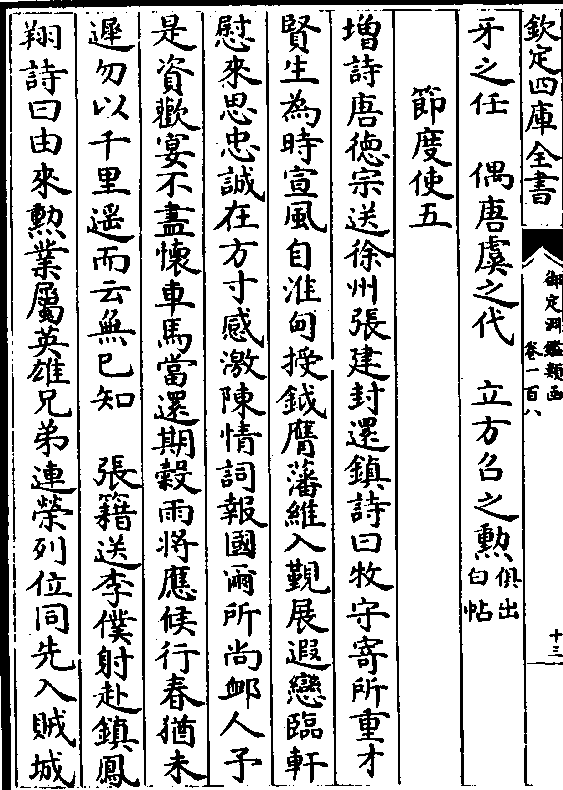 欽定四庫全書
御定淵鑑類函
卷一百八
十三
牙之任　偶唐虞之代　立方召之勲俱出白帖
節度使五
增詩唐徳宗送徐州張建封還鎮詩曰牧守寄所重才
賢生為時宣風自淮甸授鉞膺藩維入覲展遐戀臨軒
慰來思忠誠在方寸感激陳情詞報國爾所尚卹人予
是資歡宴不盡懐車馬當還期穀雨將應候行春猶未
遲勿以千里遥而云無已知　張籍送李僕射赴鎮鳳
翔詩曰由來勲業屬英雄兄弟連榮列位同先入賊城